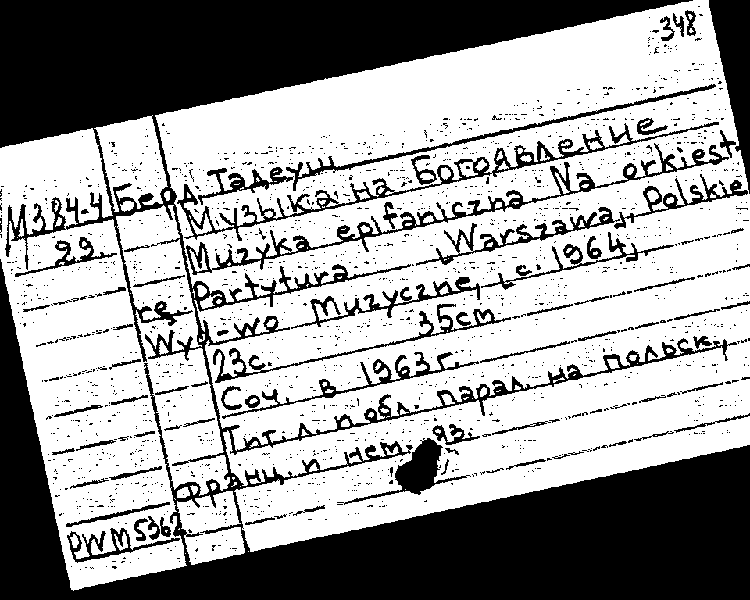 -348
Берд, Тадеуш
М384-4
29.
Музыка на Богоявление
Muzyka epifaniczna. Na orkiest-
rę. Partytura. [Warszawa], Polskie
Wyd-wo Muzyczne, [c. 1964].
23с. 35cm
Соч. в 1963г.
Тит. л. и обл. парал. на польск.,
франц. и нем. яз.
PWM 5362.